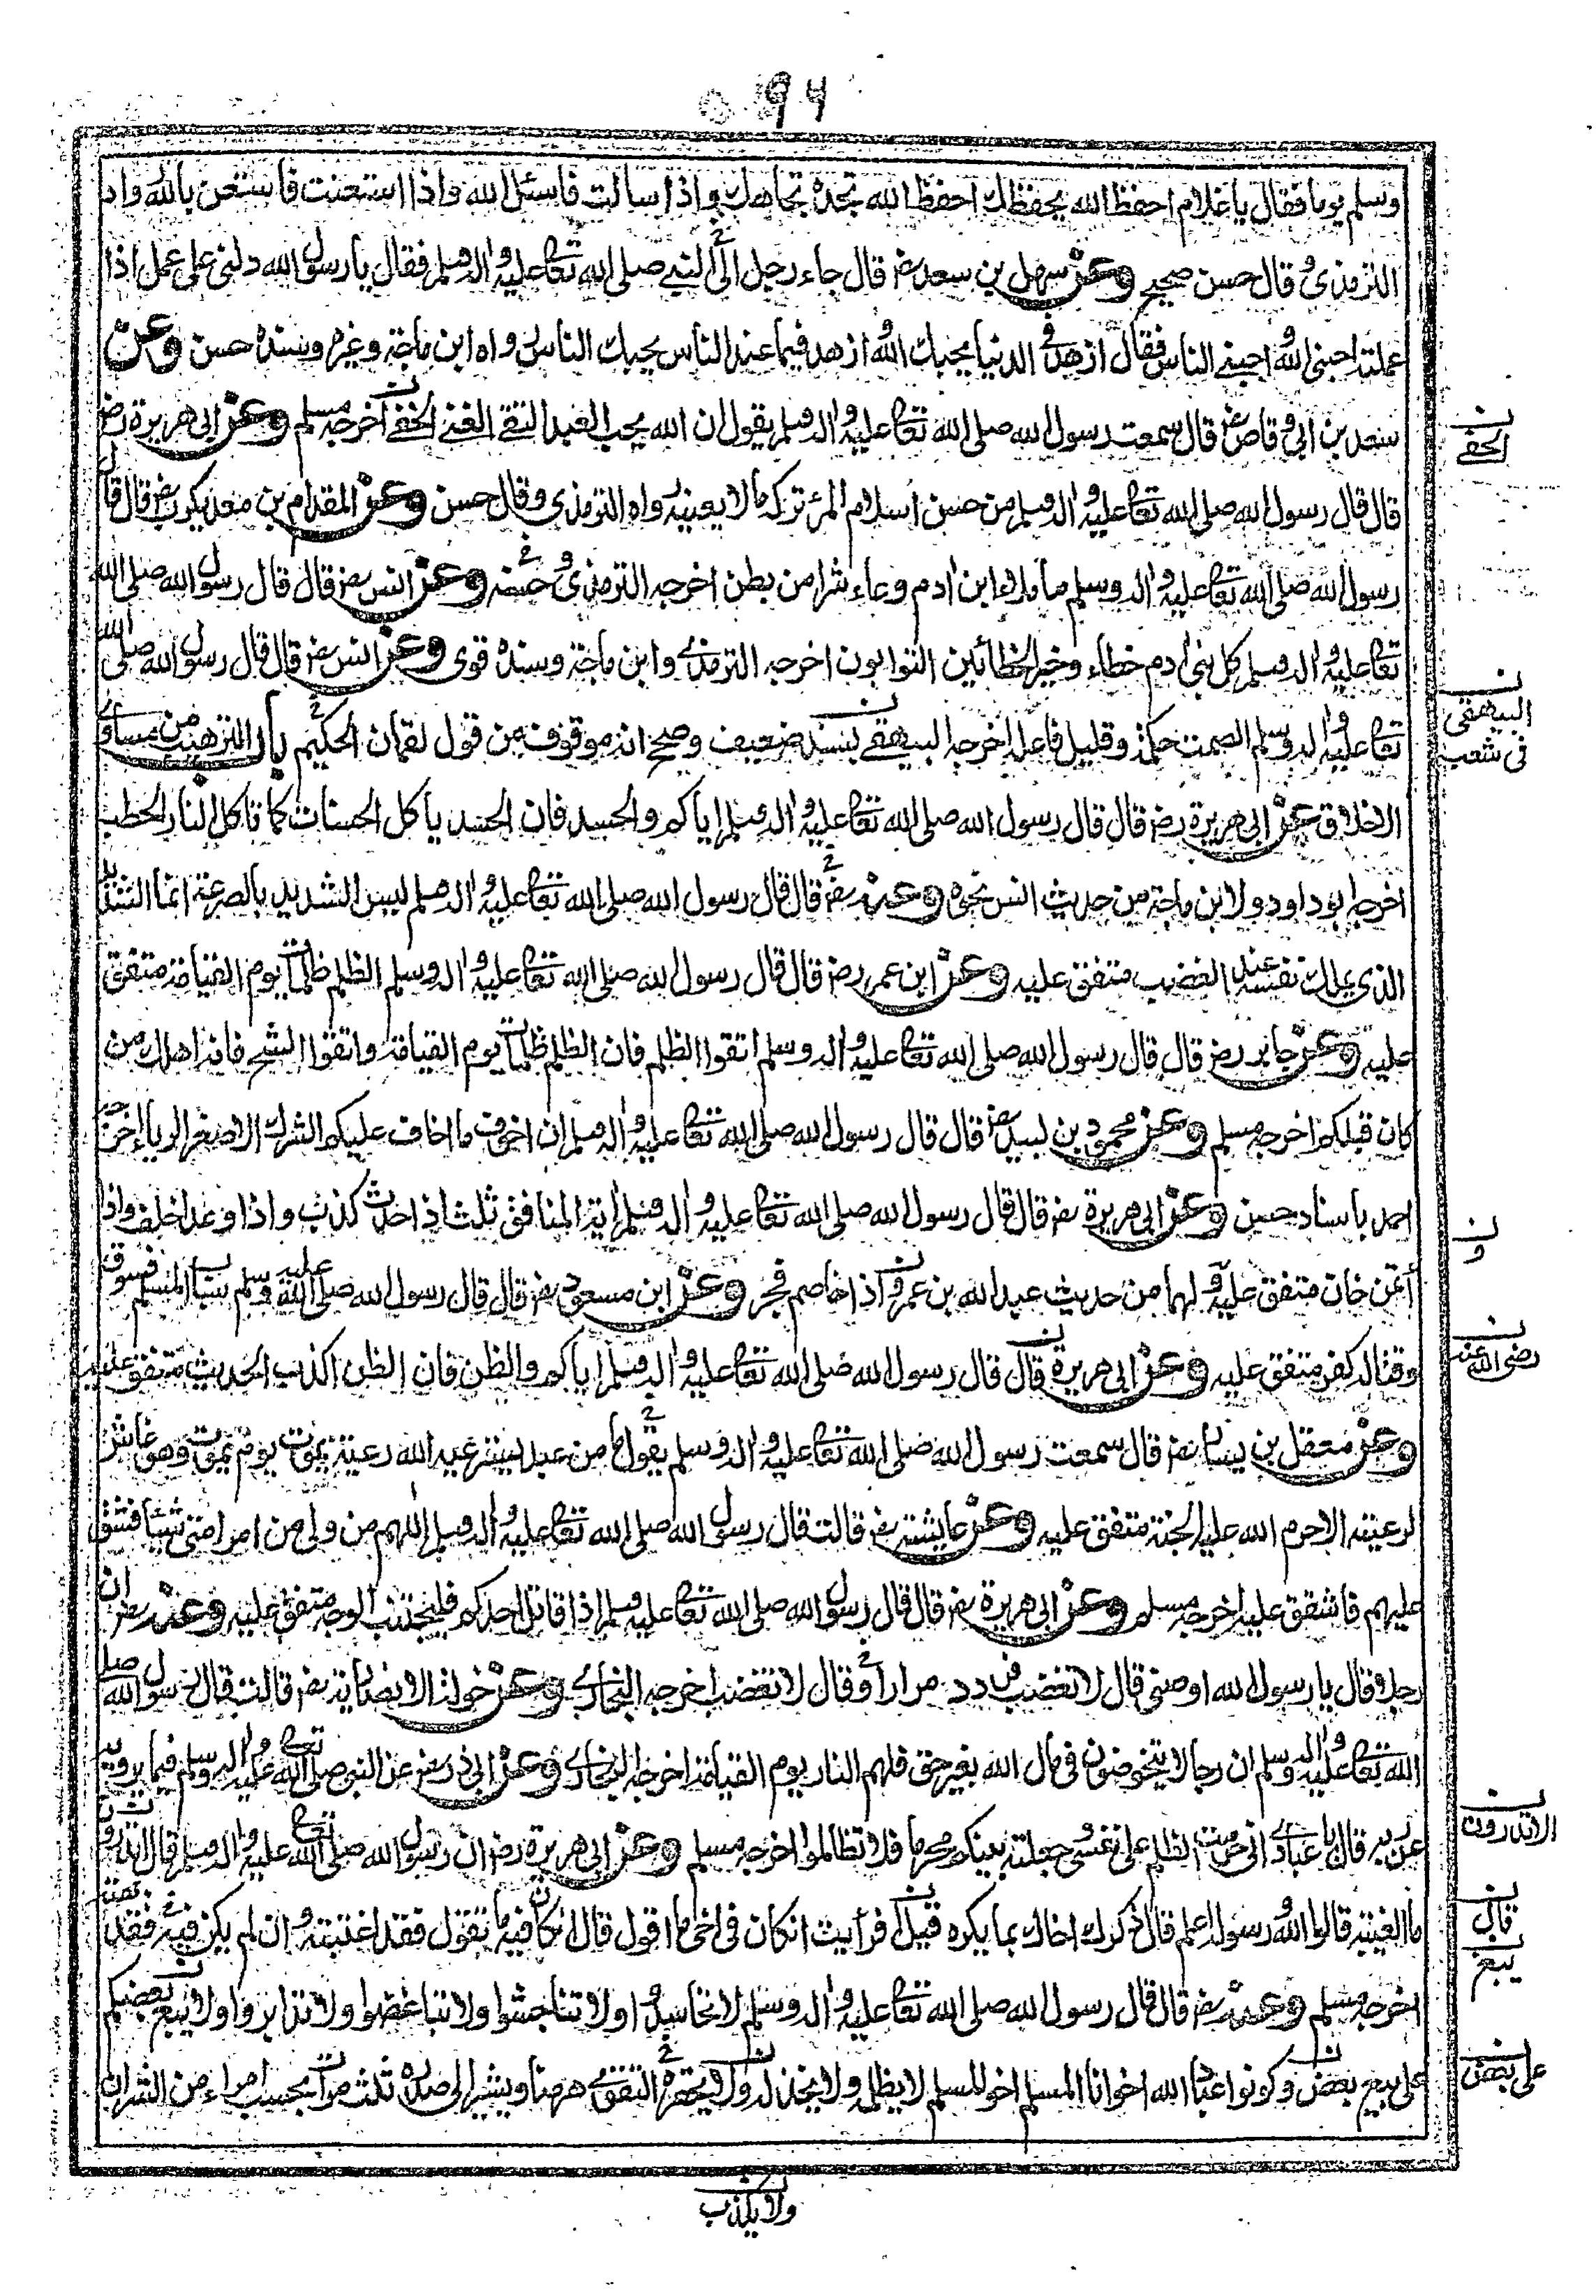 ٩٦
وسلم يوما فقال يا غلام احفظ الله يحفظك احفظ الله تجده تجاهك واذا سالت فاسئل الله واذا استعنت فاستعن بالله رواه
الترمذى وقال حسن صحيح وعن سهل بن سعد رض قال جاء رجل الى النبى صلى الله تعا عليه واله وسلم فقال يا رسول الله دلنى على عمل اذا
عملته احبنى الله واحبنى الناس فقال ازهد فى الدنيا يحبك الله وازهد فيما عند الناس يحبك الناس رواه ابن ماجة وغيره وسنده حسن وعن
سعد بن ابى وقاص رض قال سمعت رسول الله صلى الله تعا عليه واله وسلم يقول ان الله يحب العبد التقى الغنى الخفى اخرجه مسلم وعن ابى هريرة رض
الحفى
قال قال رسول الله صلى الله تعا عليه واله وسلم من حسن اسلام المرء تركه ما لا يعنيه رواه الترمذى وقال حسن وعن المقدام بن معديكرب رض قال قال
رسول الله صلى الله تعا عليه واله وسلم ما ملاء ابن ادم وعاء شرا من بطن اخرجه الترمذى وحسنه وعن انس رض قال قال رسول الله صلى الله
تعا عليه واله وسلم كل بنى ادم خطاء وخير الخطائين التوابون اخرجه الترمذى وابن ماجة وسنده قوى وعن انس رض قال قال رسول الله صلى الله
تعا عليه واله وسلم الصمت حكمة وقليل فاعله اخرجه البيهقى بسند ضعيف وصح انه موقوف من قول لقمان الحكيم باب الترهيب من مساوى
البيهقى
فى شعب
الاخلاق عن ابى هريرة رض قال قال رسول الله صلى الله تعا عليه واله وسلم اياكم والحسد فان الحسد ياكل الحسنات كما تاكل النار الحطب
اخرجه ابو داود ولابن ماجة من حديث انس نحوه وعنه رض قال قال رسول الله صلى الله تعا عليه واله وسلم ليس الشديد بالصرعة انما الشديد
الذى يملك نفسه عند الغضب متفق عليه وعن ابن عمر رض قال قال رسول الله صلى الله تعا عليه واله وسلم الظلم ظلمات يوم القيامة متفق
عليه وعن جابر رض قال قال رسول الله صلى الله تعا عليه واله وسلم اتقوا الظلم فان الظلم ظلمات يوم القيامة واتقوا الشح فانه اهلك من
كان قبلكم اخرجه مسلم وعن محمود بن لبيد رض قال قال رسول الله صلى الله تعا عليه واله وسلم ان اخوف ما اخاف عليكم الشرك الاصغر الرياء اخرجه
احمد باسناد حسن وعن ابى هريرة رض قال قال رسول الله صلى الله تعا عليه واله وسلم اية المنافق ثلث اذا حدث كذب واذا وعد اخلف واذا
و
أتمن خان متفق عليه ولهما من حديث عبد الله بن عمرو واذا خاصم فجر وعن ابن مسعود رض قال قال رسول الله صلى الله عليه وسلم سباب المسلم فسوق
وقتاله كفر متفق عليه وعن ابى هريرة قال قال رسول الله صلى الله تعا عليه واله وسلم اياكم والظن فان الظن اكذب الحديث متفق عليه
رضى الله عنه
وعن معقل بن يسار رض قال سمعت رسول الله صلى الله تعا عليه واله وسلم يقول ما من عبد يسترعيه الله رعية يموت يوم يموت وهو غاش
لرعيته الا حرم الله عليه الجنة متفق عليه وعن عايشة رض قالت قال رسول الله صلى الله تعا عليه واله وسلم اللهم من ولى من امر امتى شيئا فشق
عليهم فاشقق عليه اخرجه مسلم وعن ابى هريرة رض قال قال رسول الله صلى الله تعا عليه وسلم اذا قاتل احدكم فليجتنب الوجه متفق عليه وعنه رض ان
رجلا قال يا رسول الله اوصنى قال لا تغضب فردد مرارا وقال لا تغضب اخرجه البخارى وعن خولة الانصارية رض قالت قال رسول الله صلى
الله تعا عليه واله وسلم ان رجالا يتخوضون فى مال الله بغير حق فلهم النار يوم القيامة اخرجه البخارى وعن ابى ذر رض عن النبى صلى الله تعا عليه واله وسلم فيما يرويه
عن ربه قال يا عبادى انى حرمت الظلم على نفسى وجعلته بينكم محرما فلا تظالموا اخرجه مسلم وعن ابى هريرة رض ان رسول الله صلى الله تعا عليه واله وسلم قال اتدرون
الاتدرون
ما الغيبة قالوا الله ورسوله اعلم قال ذكرك اخاك بما يكره قيل افرأيت ان كان فى اخى ما اقول قال ان كان فيه ما تقول فقد اغتبته وان لم يكن فيه فقد بهته
قال
يبغ
اخرجه مسلم وعنه رض قال قال رسول الله صلى الله تعا عليه واله وسلم لا تحاسدوا ولا تناجشوا ولا تباغضوا ولا تدابروا ولا يبع بعضكم
على بيع بعض وكونوا عباد الله اخوانا المسلم اخو المسلم لا يظلمه ولا يخذله ولا يحقره التقوى ههنا ويشير الى صدره ثلث مرات بحسب امراء من الشر ان
على بعض
ولا يكذب